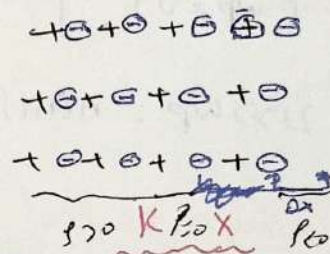 +⊖+⊖ +⊖ ⊖
+⊖+⊖+⊖+⊖
+⊖+⊖+⊖+⊖
ρ>0 K ρ=0 X ρ≤0
Δx